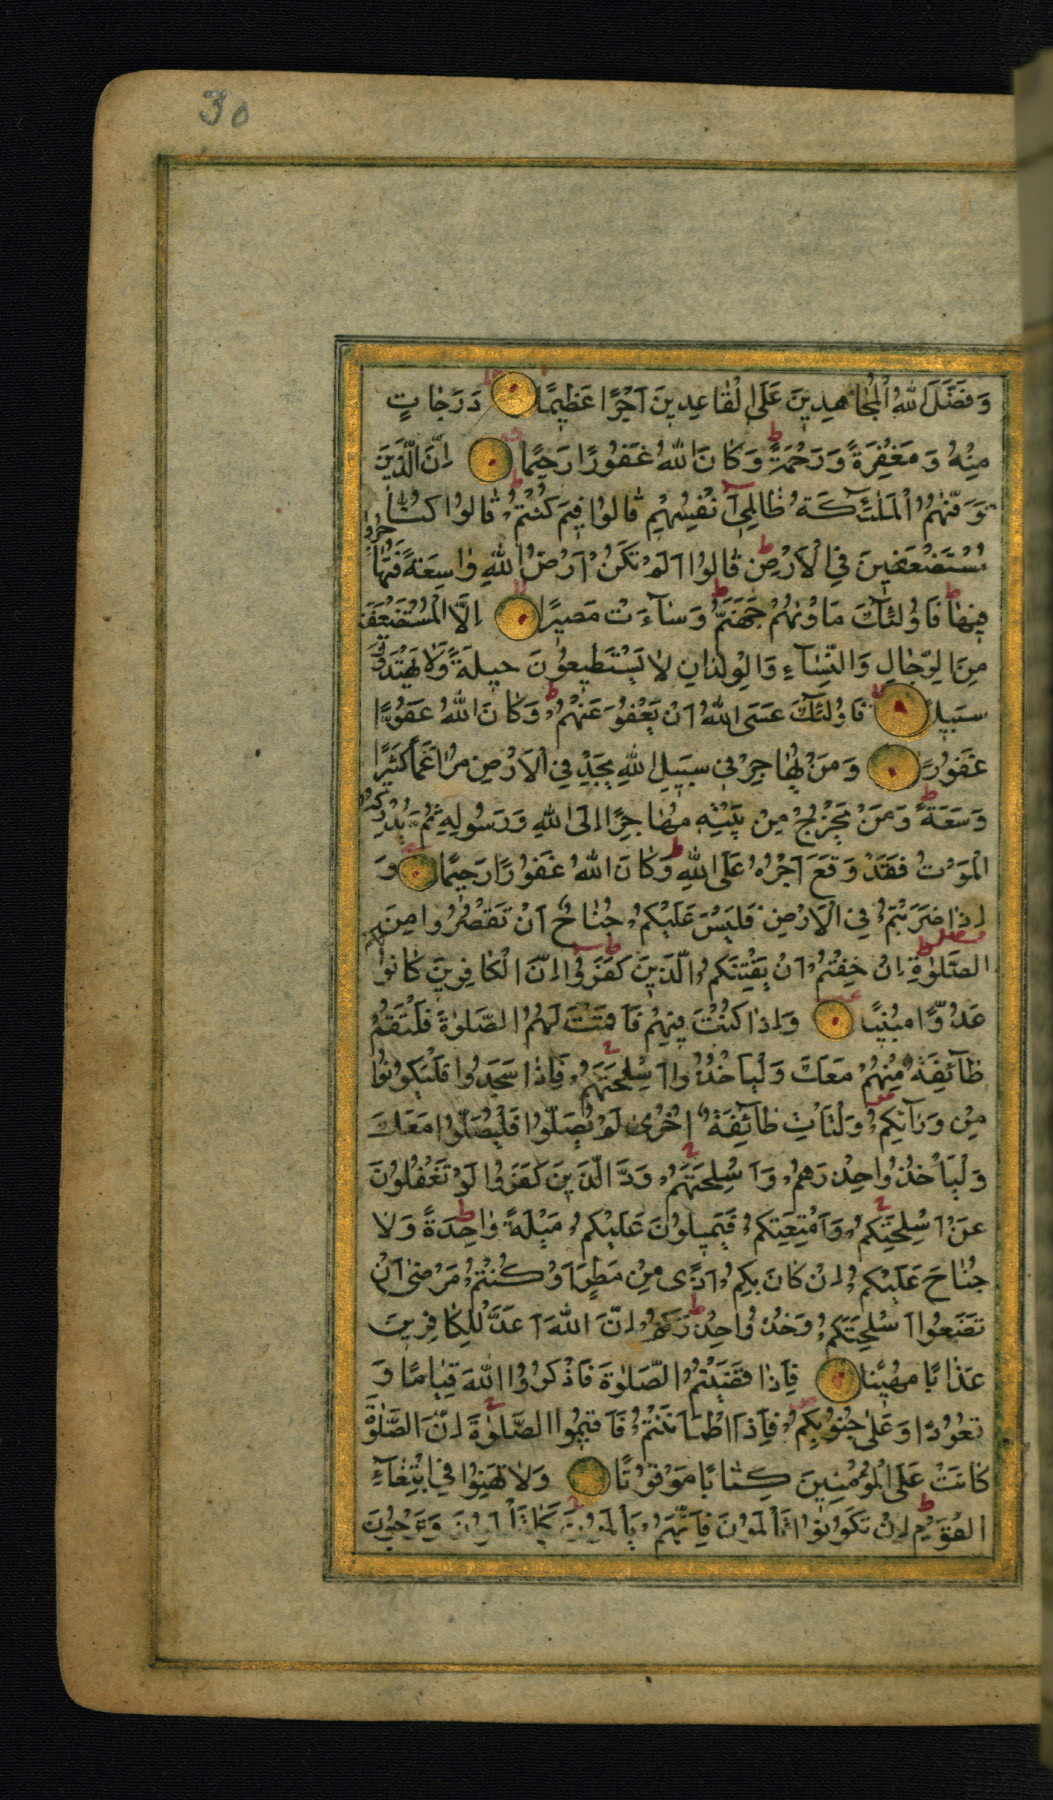 30
وَفَضَّلَ اللّٰهُ الْمُجَاهِدِينَ عَلَى الْقَاعِدِينَ اَجْرًا عَظِيمًا دَرَجَاتٍ
مِنْهُ وَمَغْفِرَةً وَرَحْمَةً وَكَانَ اللّٰهُ غَفُورًا رَحِيمًا اِنَّ الَّذِينَ
تَوَفّٰيهُمُ الْمَلٰٓئِكَةُ ظَالِمِٓى اَنْفُسِهِمْ قَالُوا فِيمَ كُنْتُمْ قَالُوا كُنَّا
مُسْتَضْعَفِينَ فِي الْاَرْضِ قَالُوا اَلَمْ تَكُنْ اَرْضُ اللّٰهِ وَاسِعَةً فَتُهَاجِرُوا
فِيهَا فَاُولٰٓئِكَ مَاْوٰيهُمْ جَهَنَّمُ وَسَآءَتْ مَصِيرًا اِلَّا الْمُسْتَضْعَفِينَ
مِنَ الرِّجَالِ وَالنِّسَآءِ وَالْوِلْدَانِ لَا يَسْتَطِيعُونَ حِيلَةً وَلَا يَهْتَدُونَ
سَبِيلًا فَاُولٰٓئِكَ عَسَى اللّٰهُ اَنْ يَعْفُوَ عَنْهُمْ وَكَانَ اللّٰهُ عَفُوًّا
غَفُورًا وَمَنْ يُهَاجِرْ فِي سَبِيلِ اللّٰهِ يَجِدْ فِي الْاَرْضِ مُرَاغَمًا كَثِيرًا
وَسَعَةً وَمَنْ يَخْرُجْ مِنْ بَيْتِهِ مُهَاجِرًا اِلَى اللّٰهِ وَرَسُولِهِ ثُمَّ يُدْرِكْهُ
الْمَوْتُ فَقَدْ وَقَعَ اَجْرُهُ عَلَى اللّٰهِ وَكَانَ اللّٰهُ غَفُورًا رَحِيمًا وَ
اِذَا ضَرَبْتُمْ فِي الْاَرْضِ فَلَيْسَ عَلَيْكُمْ جُنَاحٌ اَنْ تَقْصُرُوا مِنَ
الصَّلٰوةِ اِنْ خِفْتُمْ اَنْ يَفْتِنَكُمُ الَّذِينَ كَفَرُوا اِنَّ الْكَافِرِينَ كَانُوا لَكُمْ
عَدُوًّا مُبِينًا وَاِذَا كُنْتَ فِيهِمْ فَاَقَمْتَ لَهُمُ الصَّلٰوةَ فَلْتَقُمْ
طَآئِفَةٌ مِنْهُمْ مَعَكَ وَلْيَاْخُذُوا اَسْلِحَتَهُمْ فَاِذَا سَجَدُوا فَلْيَكُونُوا
مِنْ وَرَآئِكُمْ وَلْتَاْتِ طَآئِفَةٌ اُخْرٰى لَمْ يُصَلُّوا فَلْيُصَلُّوا مَعَكَ
وَلْيَاْخُذُوا حِذْرَهُمْ وَاَسْلِحَتَهُمْ وَدَّ الَّذِينَ كَفَرُوا لَوْ تَغْفُلُونَ
عَنْ اَسْلِحَتِكُمْ وَاَمْتِعَتِكُمْ فَيَمِيلُونَ عَلَيْكُمْ مَيْلَةً وَاحِدَةً وَلَا
جُنَاحَ عَلَيْكُمْ اِنْ كَانَ بِكُمْ اَذًى مِنْ مَطَرٍ اَوْ كُنْتُمْ مَرْضٰى اَنْ
تَضَعُوا اَسْلِحَتَكُمْ وَخُذُوا حِذْرَكُمْ اِنَّ اللّٰهَ اَعَدَّ لِلْكَافِرِينَ
عَذَابًا مُهِينًا فَاِذَا قَضَيْتُمُ الصَّلٰوةَ فَاذْكُرُوا اللّٰهَ قِيَامًا وَ
قُعُودًا وَعَلٰى جُنُوبِكُمْ فَاِذَا اطْمَاْنَنْتُمْ فَاَقِيمُوا الصَّلٰوةَ اِنَّ الصَّلٰوةَ
كَانَتْ عَلَى الْمُؤْمِنِينَ كِتَابًا مَوْقُوتًا وَلَا تَهِنُوا فِي ابْتِغَآءِ
الْقَوْمِ اِنْ تَكُونُوا تَاْلَمُونَ فَاِنَّهُمْ يَاْلَمُونَ كَمَا تَاْلَمُونَ وَتَرْجُونَ